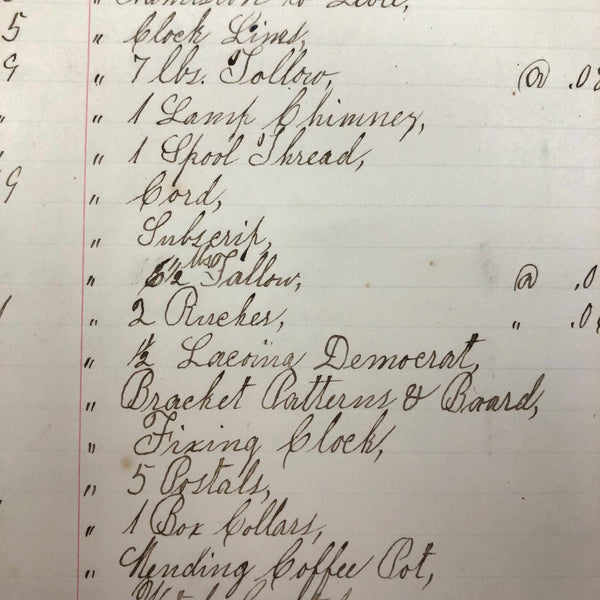 5 " Clock Lims,
9 " 7 lbs. Tallow, @ .0
" " 1 Lamp Chimney,
" " 1 Spool Thread,
9 " Cord,
" Subscrip,
" 6½ lbs Tallow, @ .0
" 2 Ruches, " .0
" ½ Laconia Democrat,
" Bracket Patterns & Board,
" Fixing Clock,
" 5 Postals,
" 1 Box Collars,
" Mending Coffee Pot,